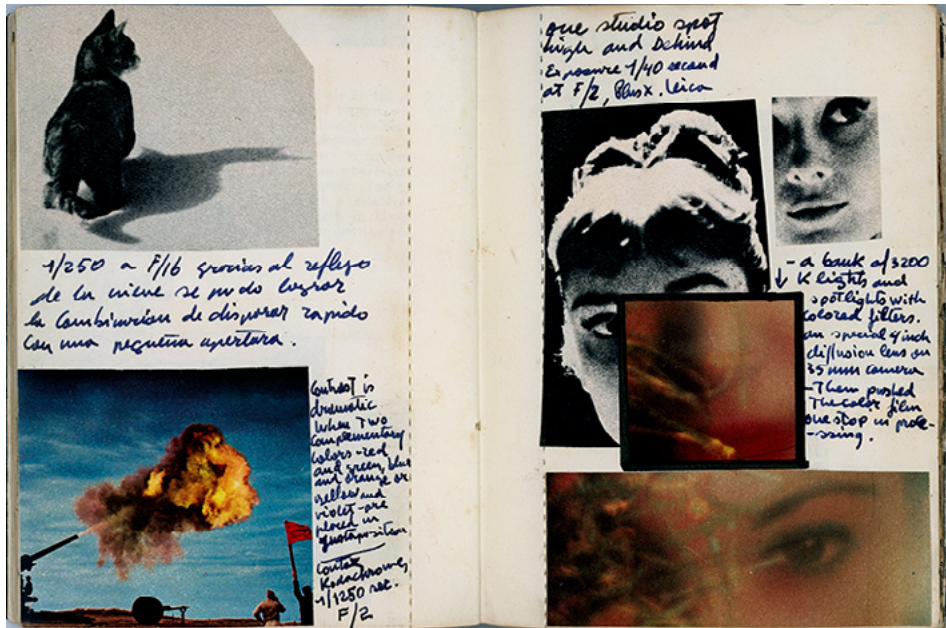 1/250 a F/16 gracias al reflejo
de la nieve se pudo lograr
la combinacion de disparar rapido
con una pequeña apertura.
Contrast is
dramatic
when Two
complementary
colors-red
and green, blue
and orange or
yellow and
violet-are
placed in
juxtaposition
Contax
Kodachrome,
1/1250 sec.
F/2
one studio spot
high and Behind
Exposure 1/40 second
at F/2, Plus X. Leica
- a bank of 3200
K lights and
spotlights with
colored filters.
an special 9 inch
diffusion lens on
35 mm camera
- Then pushed
The color film
one stop in proce-
-ssing.